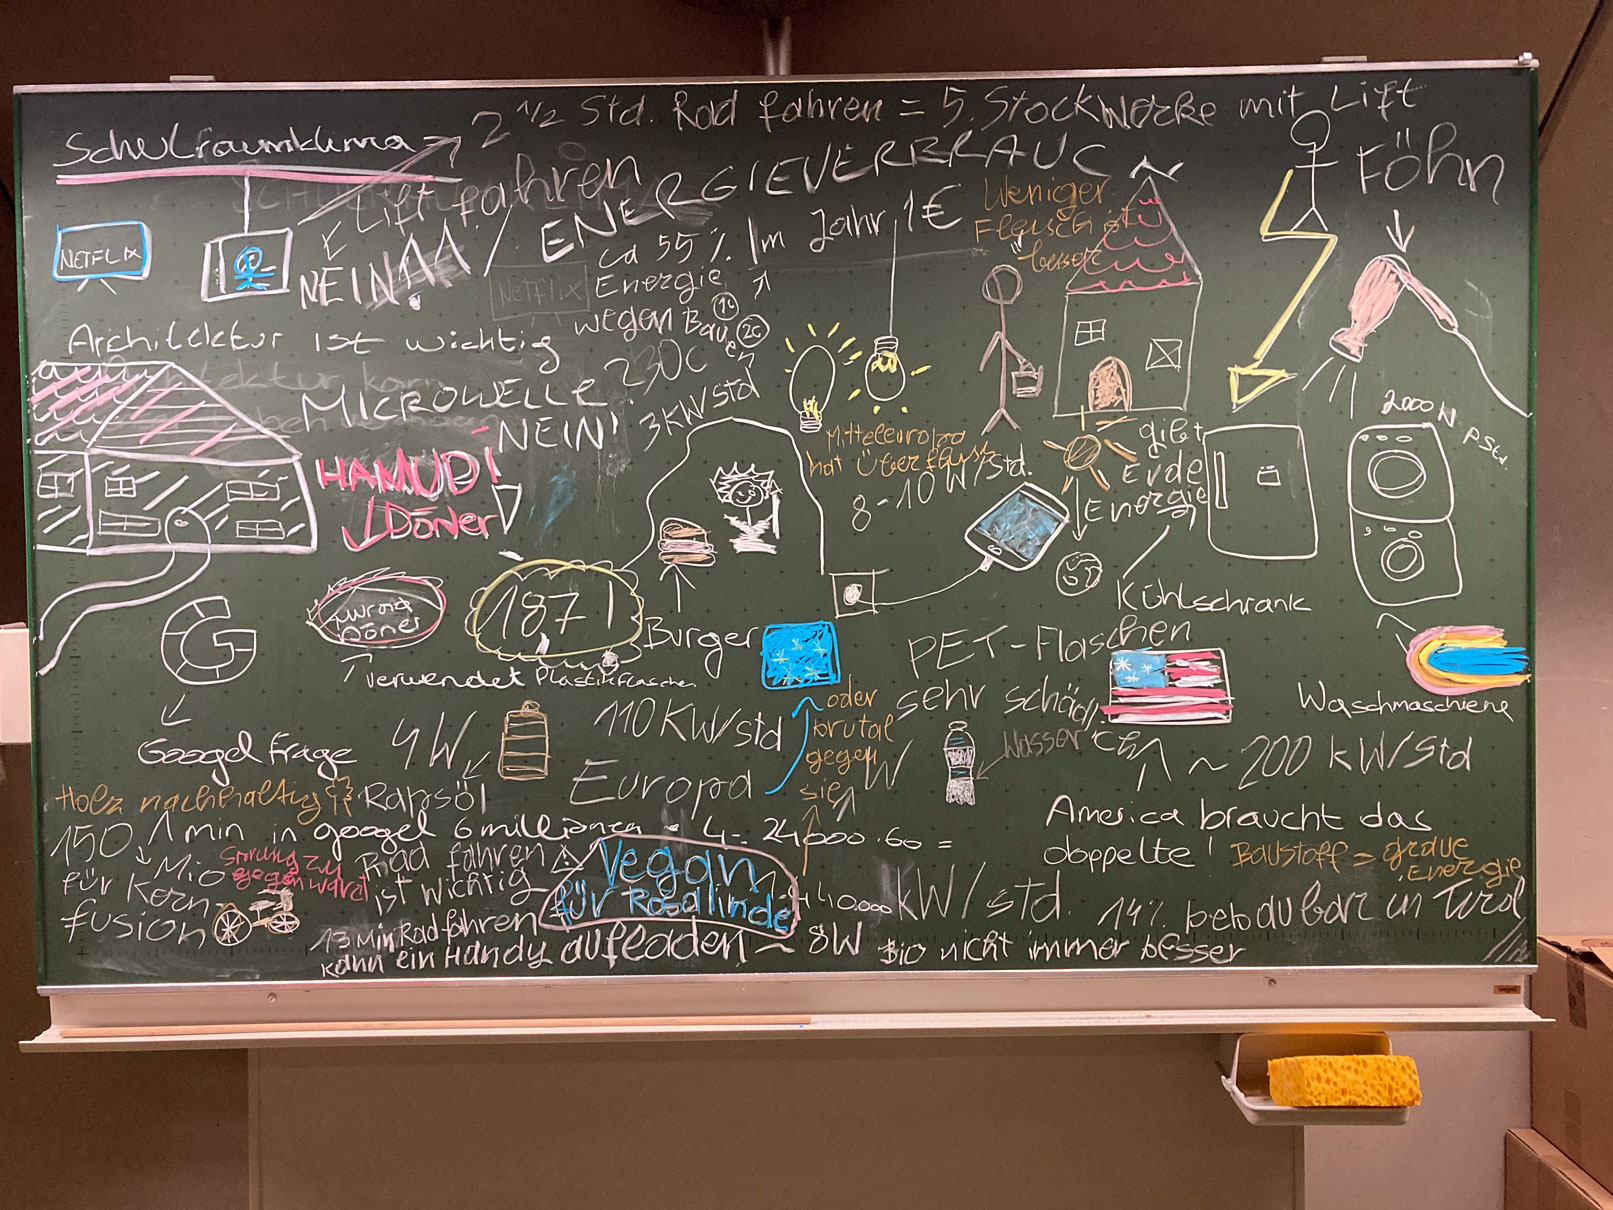 2 1/2 Std. Rad fahren = 5. Stockwerke mit Lift
Schulraumklima
Lift fahren
ENERGIEVERBRAUC
Föhn
NETFLIX
NEIN!
ca 55%
Energie
wegen Bauen
Netflix
Im Jahr 1€
1c
2c
Weniger
Fleisch ist
besser
Architektur ist wichtig
MICROWELLE
230C
3KW/std
NEIN!
HAMUDI
Döner
Mitteleuropa
hat Überfluss
8-10W/std.
gibt
Erde
Energie
2000W
pStd.
1871
Döner
verwendet Plastikflaschen
Burger
G
Googel Frage
4W
110 KW/std
Europa
oder
brutal
gegen
sie
W
PET-Flaschen
sehr schädlich
Wasser
Kühlschrank
Waschmaschiene
~ 200 kW/Std
America braucht das
doppelte!
Baustoff = graue
Energie
Holz nachhaltig
Rapsöl
1 min in googel 6 millionen · 4 = 24000.60 =
150
Mio
für Kern-
fusion
Sprung zu
gegenwart
Rad fahren
ist wichtig
Vegan
für Rosalinde
kW/std.
14% bebaubar in Tirol
13 Min Rad fahren
kann ein Handy aufladen ~ 8W
Bio nicht immer besser